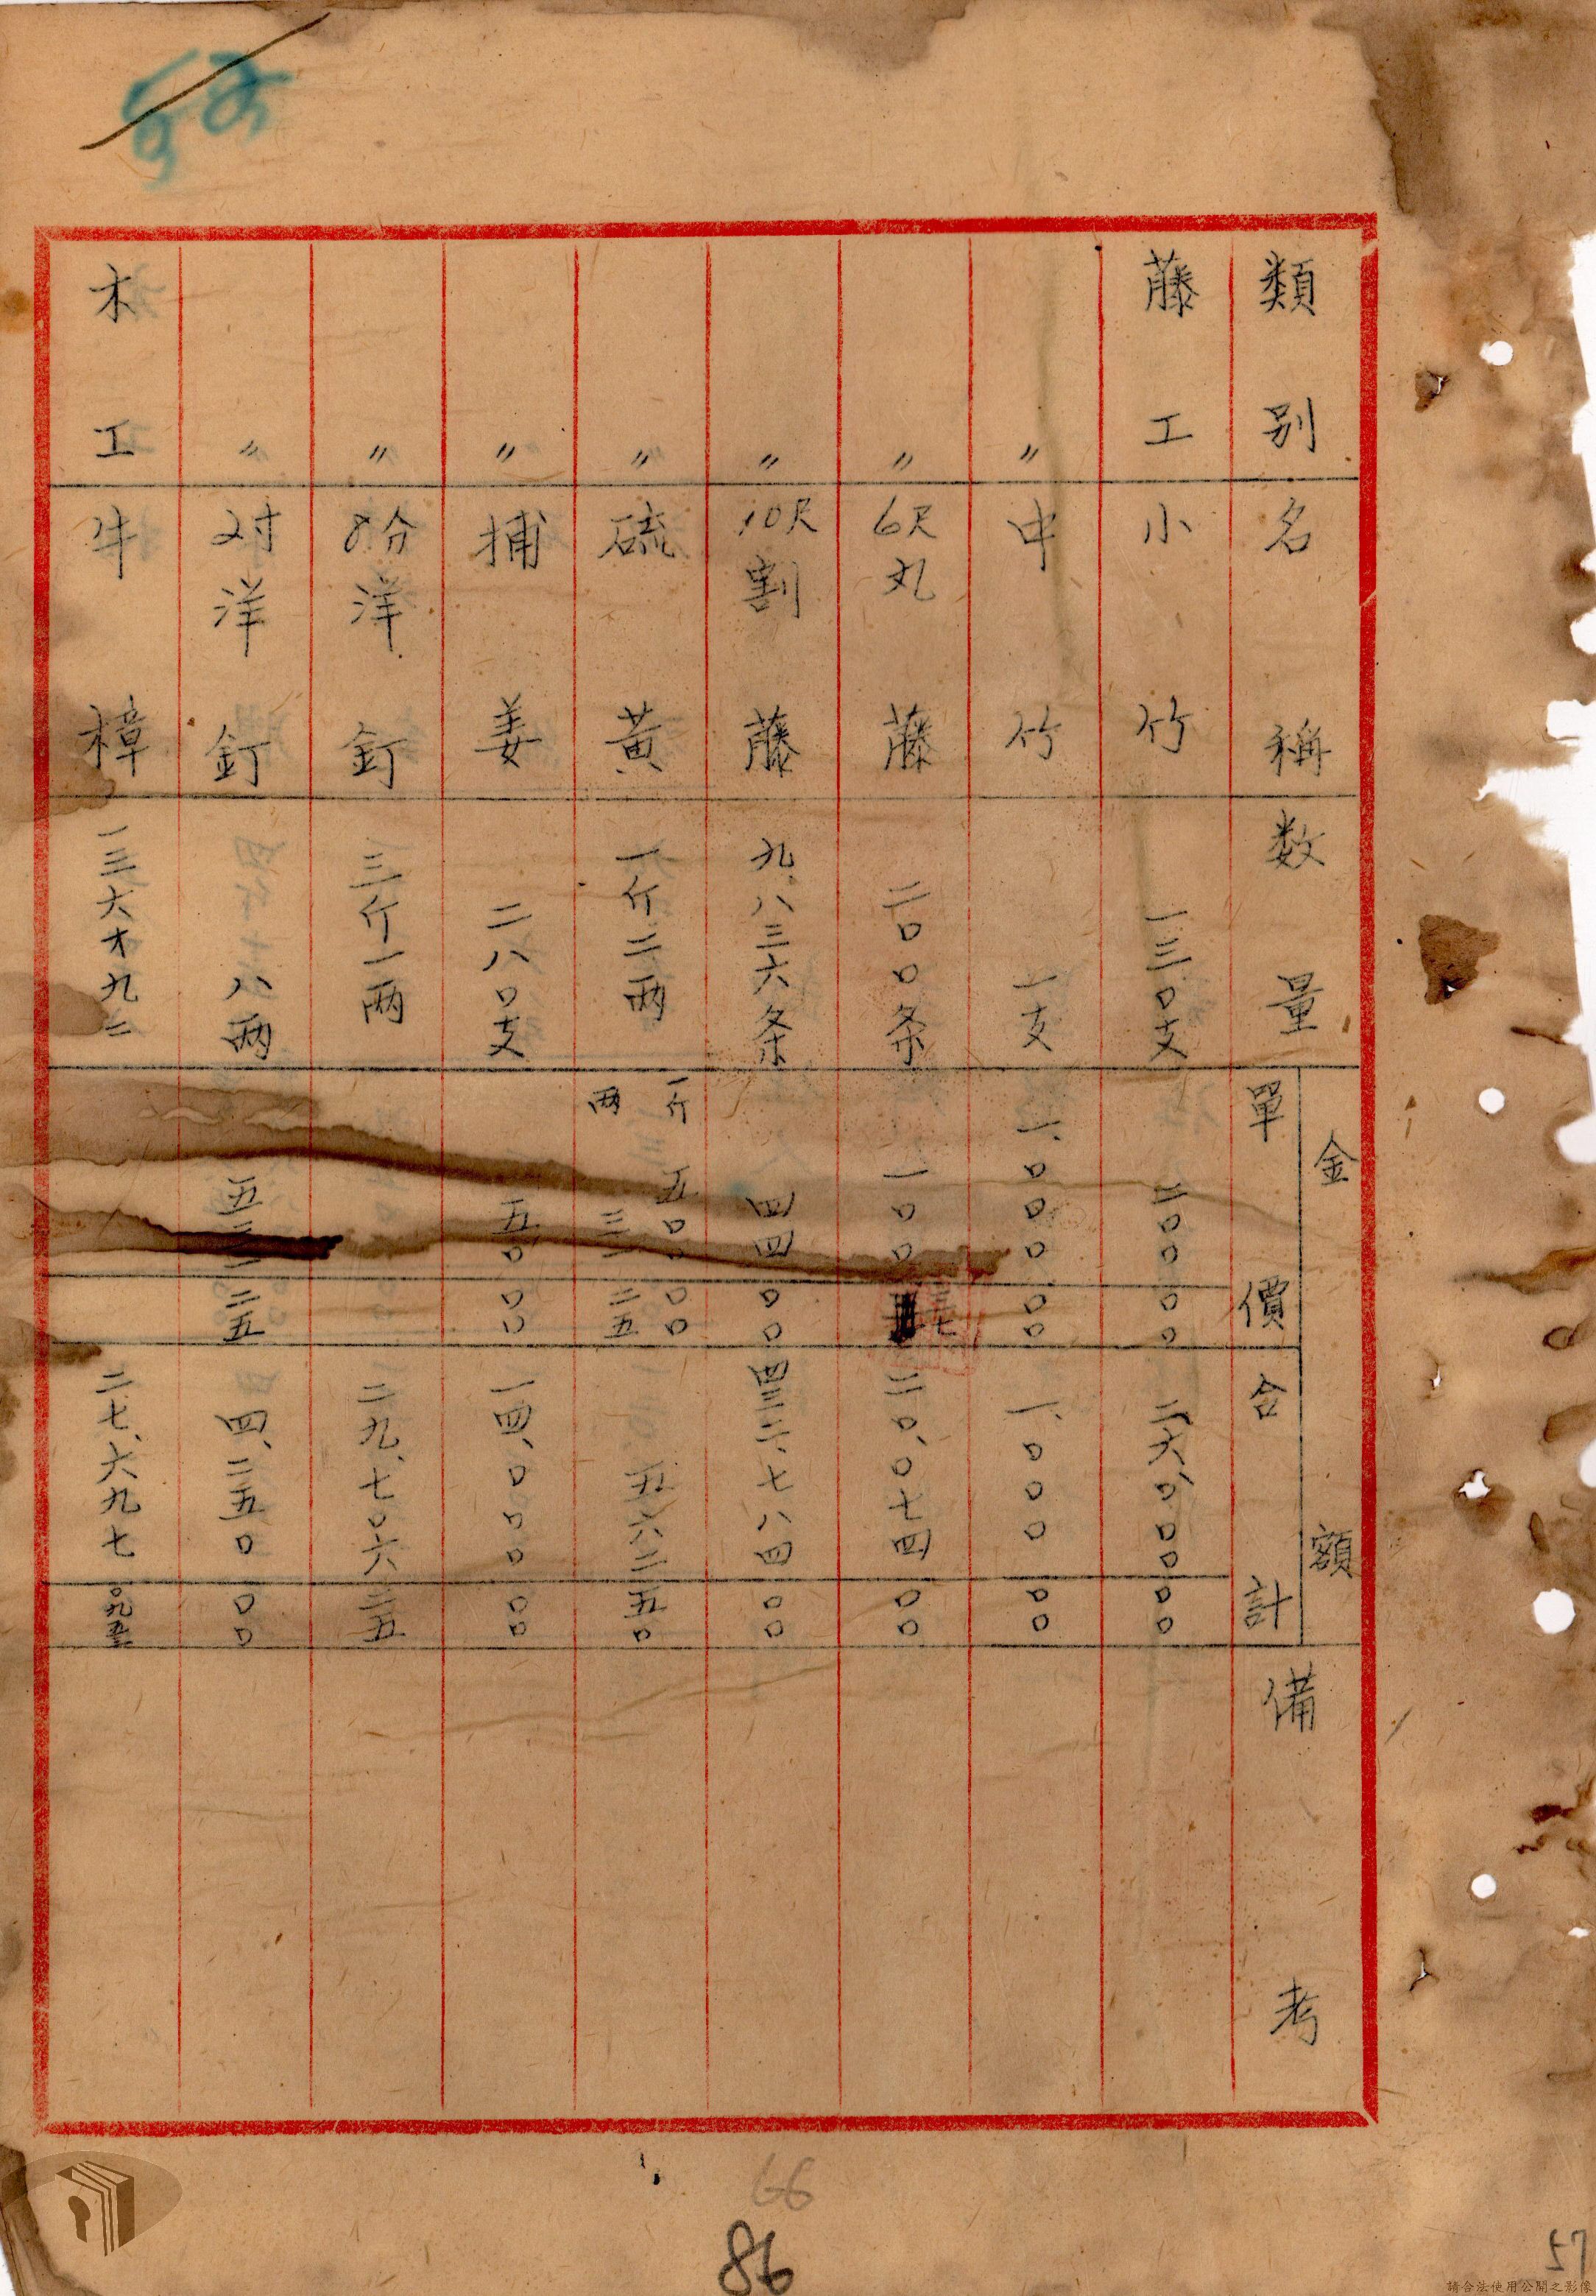 類別 名稱 数量 金額 單價 合計 備考
藤工 小竹 一三〇支 二〇〇 〇〇 二六、〇〇〇 〇〇
〃 中竹 一支 一、〇〇〇 〇〇 一、〇〇〇 〇〇
〃 6尺丸藤 二〇〇条 一〇〇 七 二〇、〇七四 〇〇
〃 10尺割藤 九、八三六条 四四 〇〇 四三二、七八四 〇〇
〃 硫黃 一斤二两 一斤 五〇〇 〇〇 两 三一 二五 五六二 五〇
〃 捕姜 二八〇支 五〇 〇〇 一四、〇〇〇 〇〇
〃 8分洋釘 三斤一两 二九、七〇六 二五
〃 2寸洋釘 八两 五三一 二五 四、二五〇 〇〇
木工 牛樟 一三六才九二 二七、六九七 〇九五
66
86
57
請合法使用公開之影像